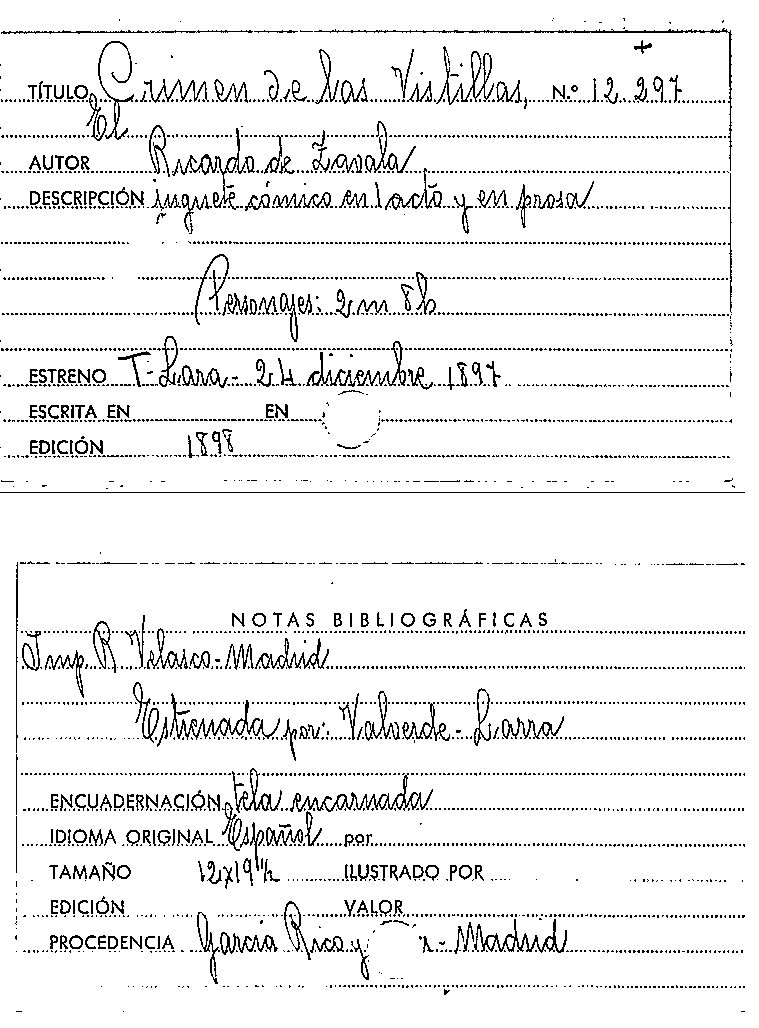 +
TÍTULO Crimen de las Vistillas, N.º 12.297
El
AUTOR Ricardo de Zavala
DESCRIPCIÓN juguete cómico en 1 acto y en prosa
Personajes: 2 m 8 h
ESTRENO T- Lara - 24 diciembre 1897
ESCRITA EN EN
EDICIÓN 1898
NOTAS BIBLIOGRÁFICAS
Imp. R. Velasco - Madrid
Estrenada por: Valverde - Larra
ENCUADERNACIÓN tela encarnada
IDIOMA ORIGINAL Español por
TAMAÑO 12x19½ ILUSTRADO POR
EDICIÓN VALOR
PROCEDENCIA García Rico y - Madrid